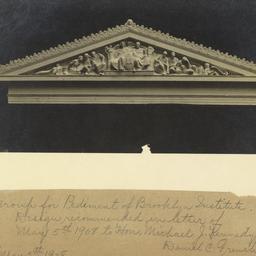 Group for Pediment of Brooklyn Institute.
Design recommended in letter of
May 5th 1908 to Hon. Michael J. Kennedy
Daniel C. French
1908